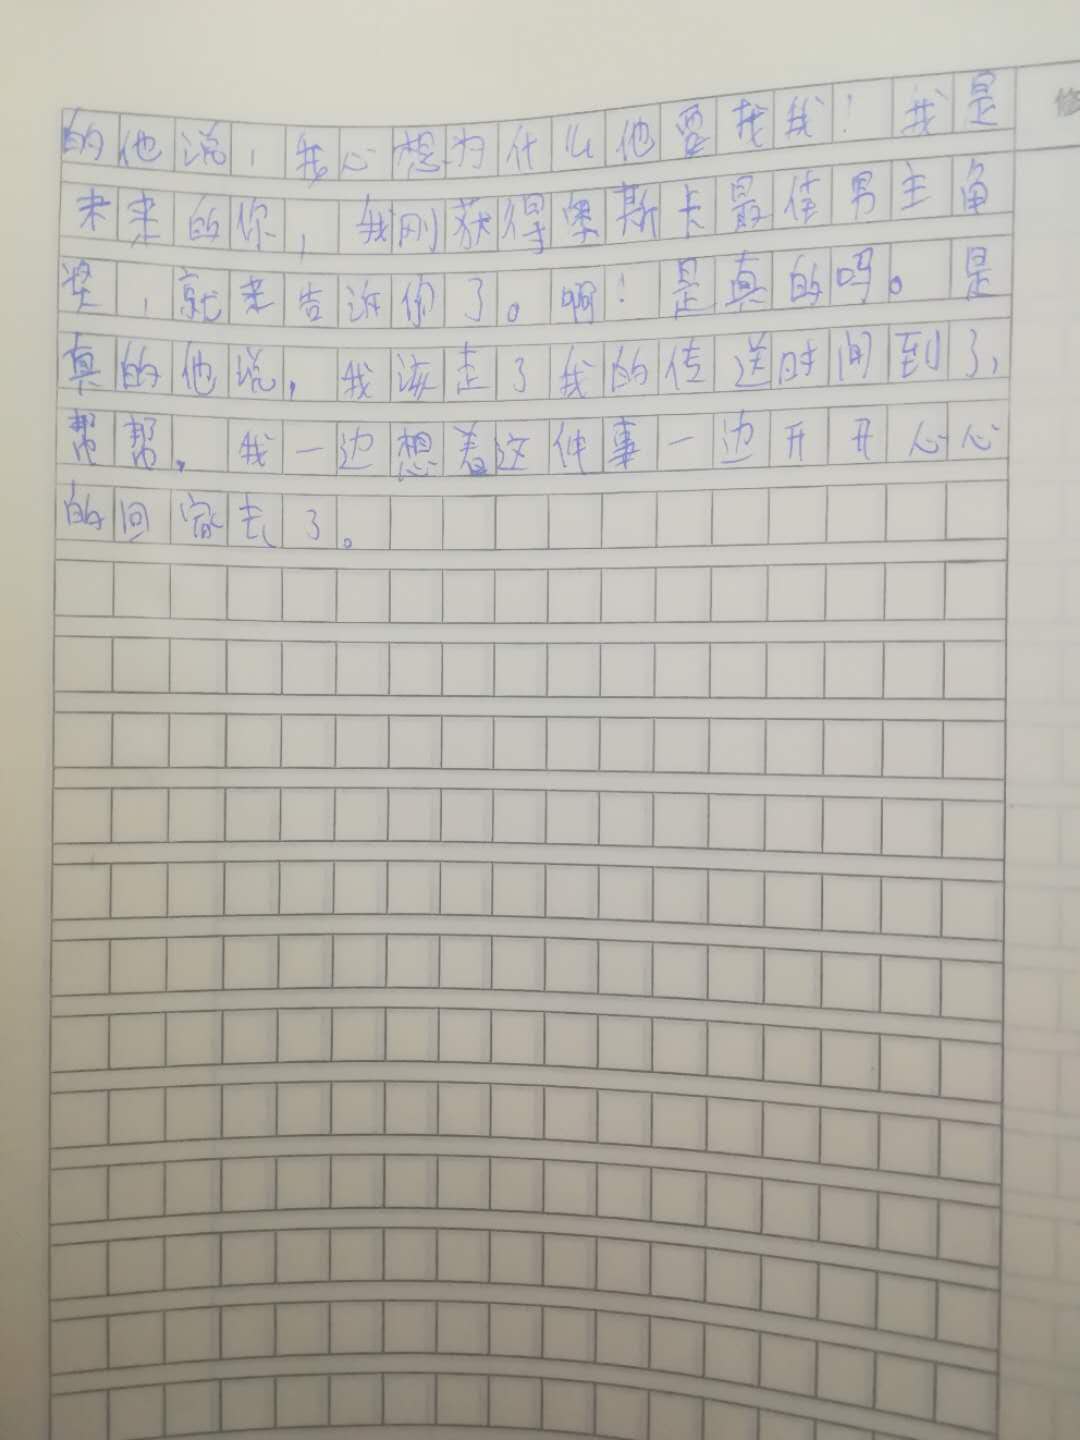 的他说，我心想为什么他要找我！我是
未来的你，我刚获得奥斯卡最佳男主角
奖，就来告诉你了。啊！是真的吗。是
真的他说，我该走了我的传送时间到了，
帮帮。我一边想着这件事一边开开心心
的回家去了。
修